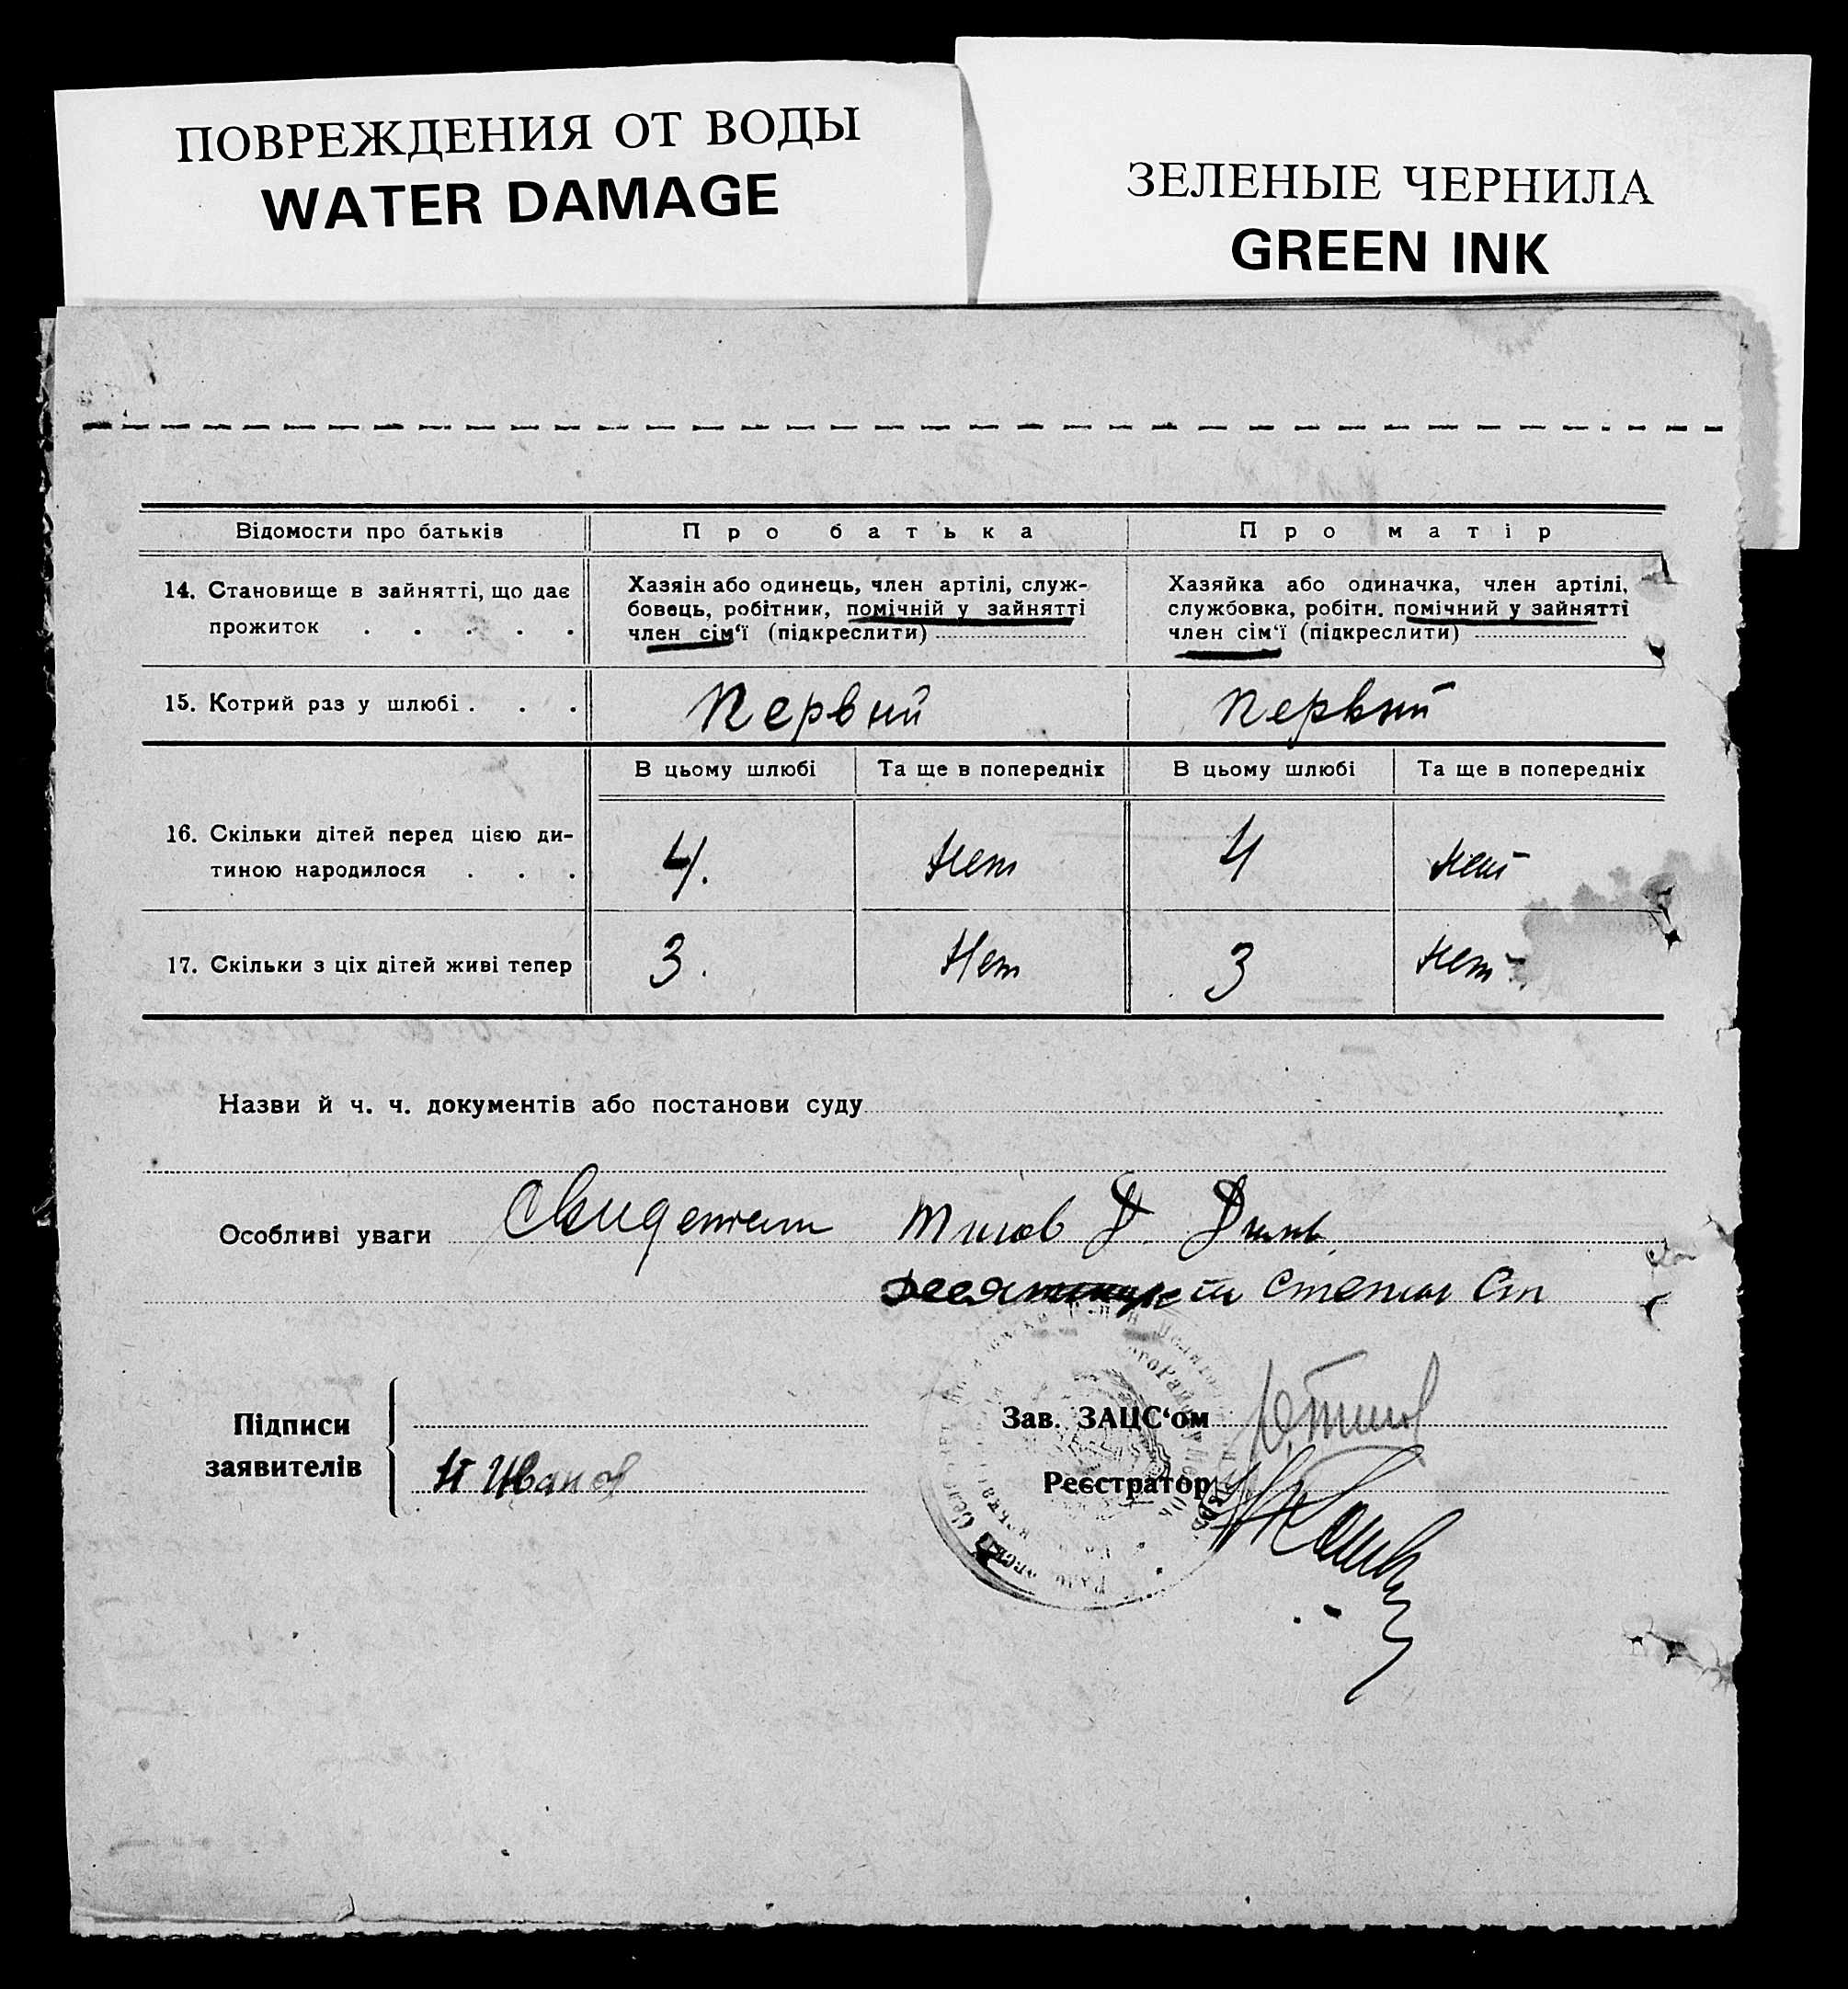 ПОВРЕЖДЕНИЯ ОТ ВОДЫ
WATER DAMAGE
ЗЕЛЕНЫЕ ЧЕРНИЛА
GREEN INK
Відомости про батьків
Про батька
Про матір
14. Становище в зайнятті, що дає
прожиток . . . . .
Хазяін або одинець, член артілі, служ-
бовець, робітник, помічній у зайнятті
член сім'ї (підкреслити)
Хазяйка або одиначка, член артілі,
службовка, робітн. помічний у зайнятті
член сім'ї (підкреслити)
15. Котрий раз у шлюбі . . .
Первий
Первый
В цьому шлюбі
Та ще в попередніх
В цьому шлюбі
Та ще в попередніх
16. Скільки дітей перед цією ди-
тиною народилося . . .
4.
Нет
4
Нет
17. Скільки з ціх дітей живі тепер
3.
Нет
3
Нет
Назви й ч. ч. документів або постанови суду
Особливі уваги
Титов Д.
Степан Ст
Підписи
заявителів
Н Иванов
Зав. ЗАЦС'ом
Реєстратор